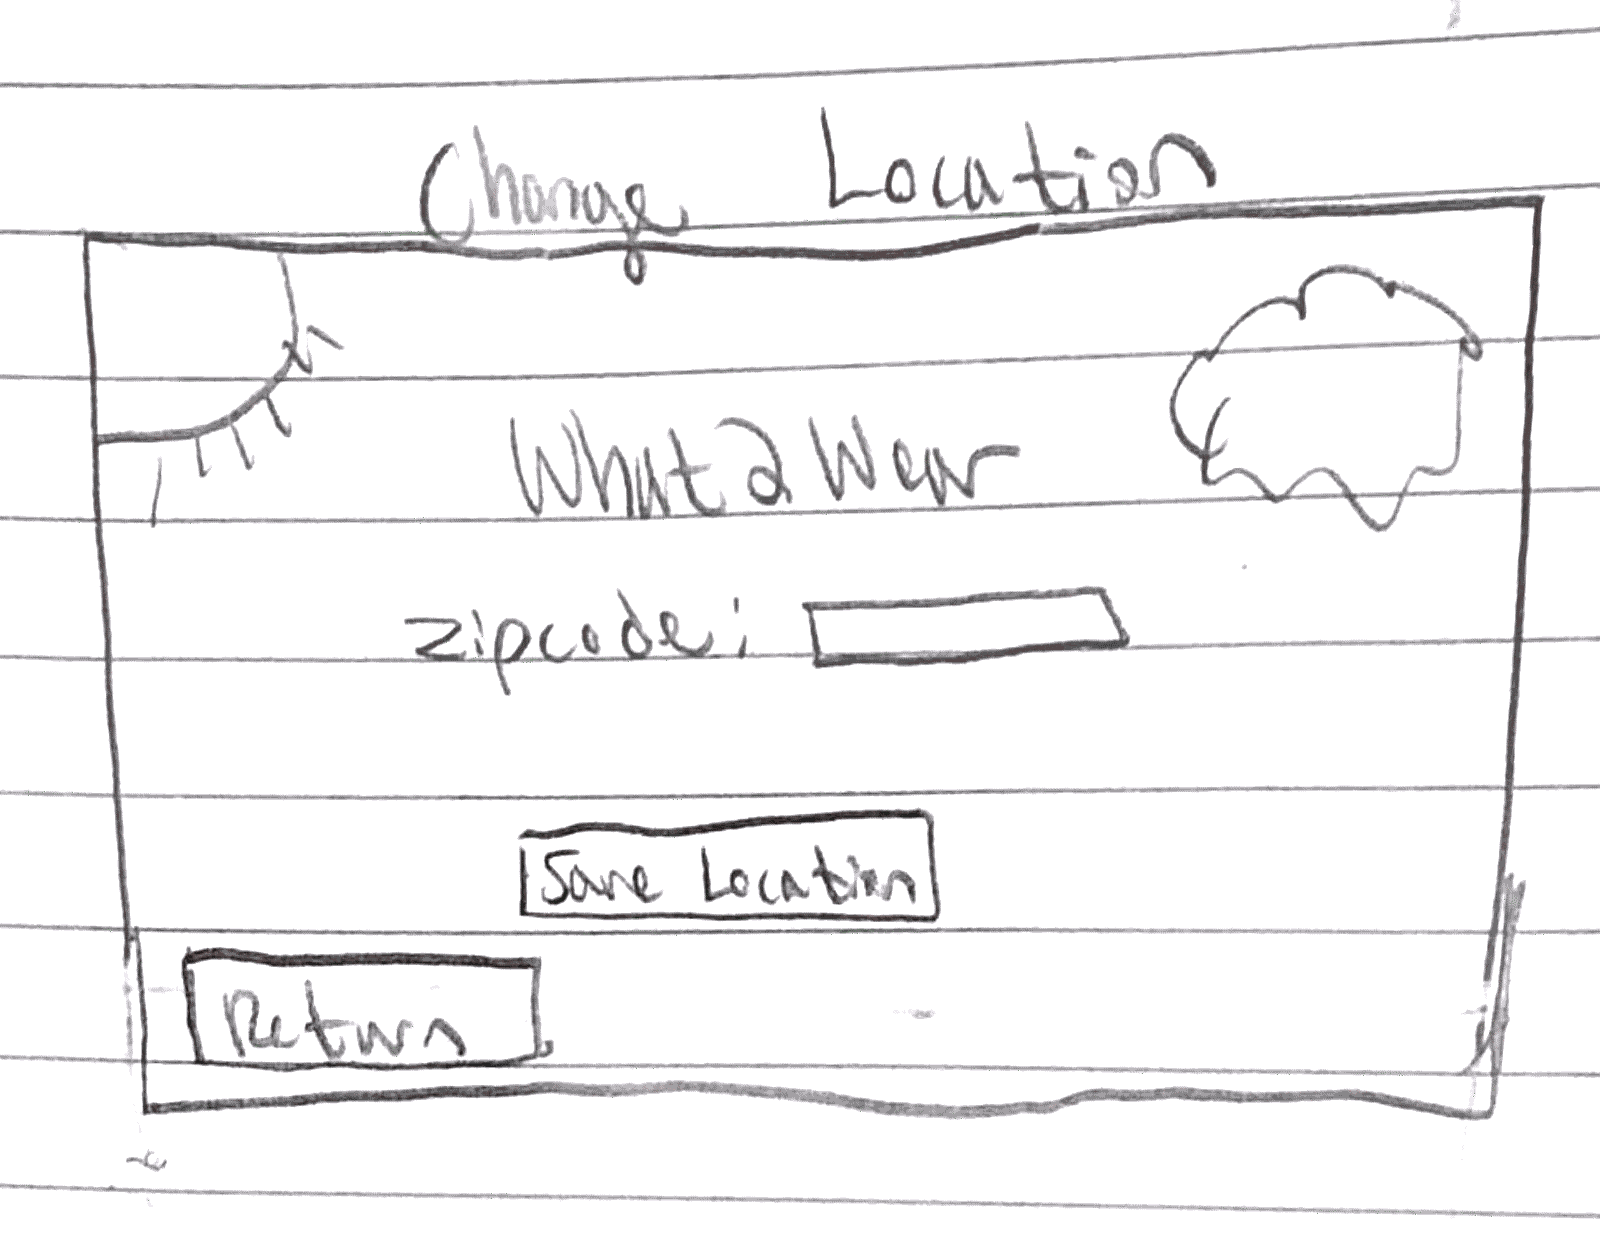 Change Location
What 2 Wear
Zipcode:
Save Location
Return